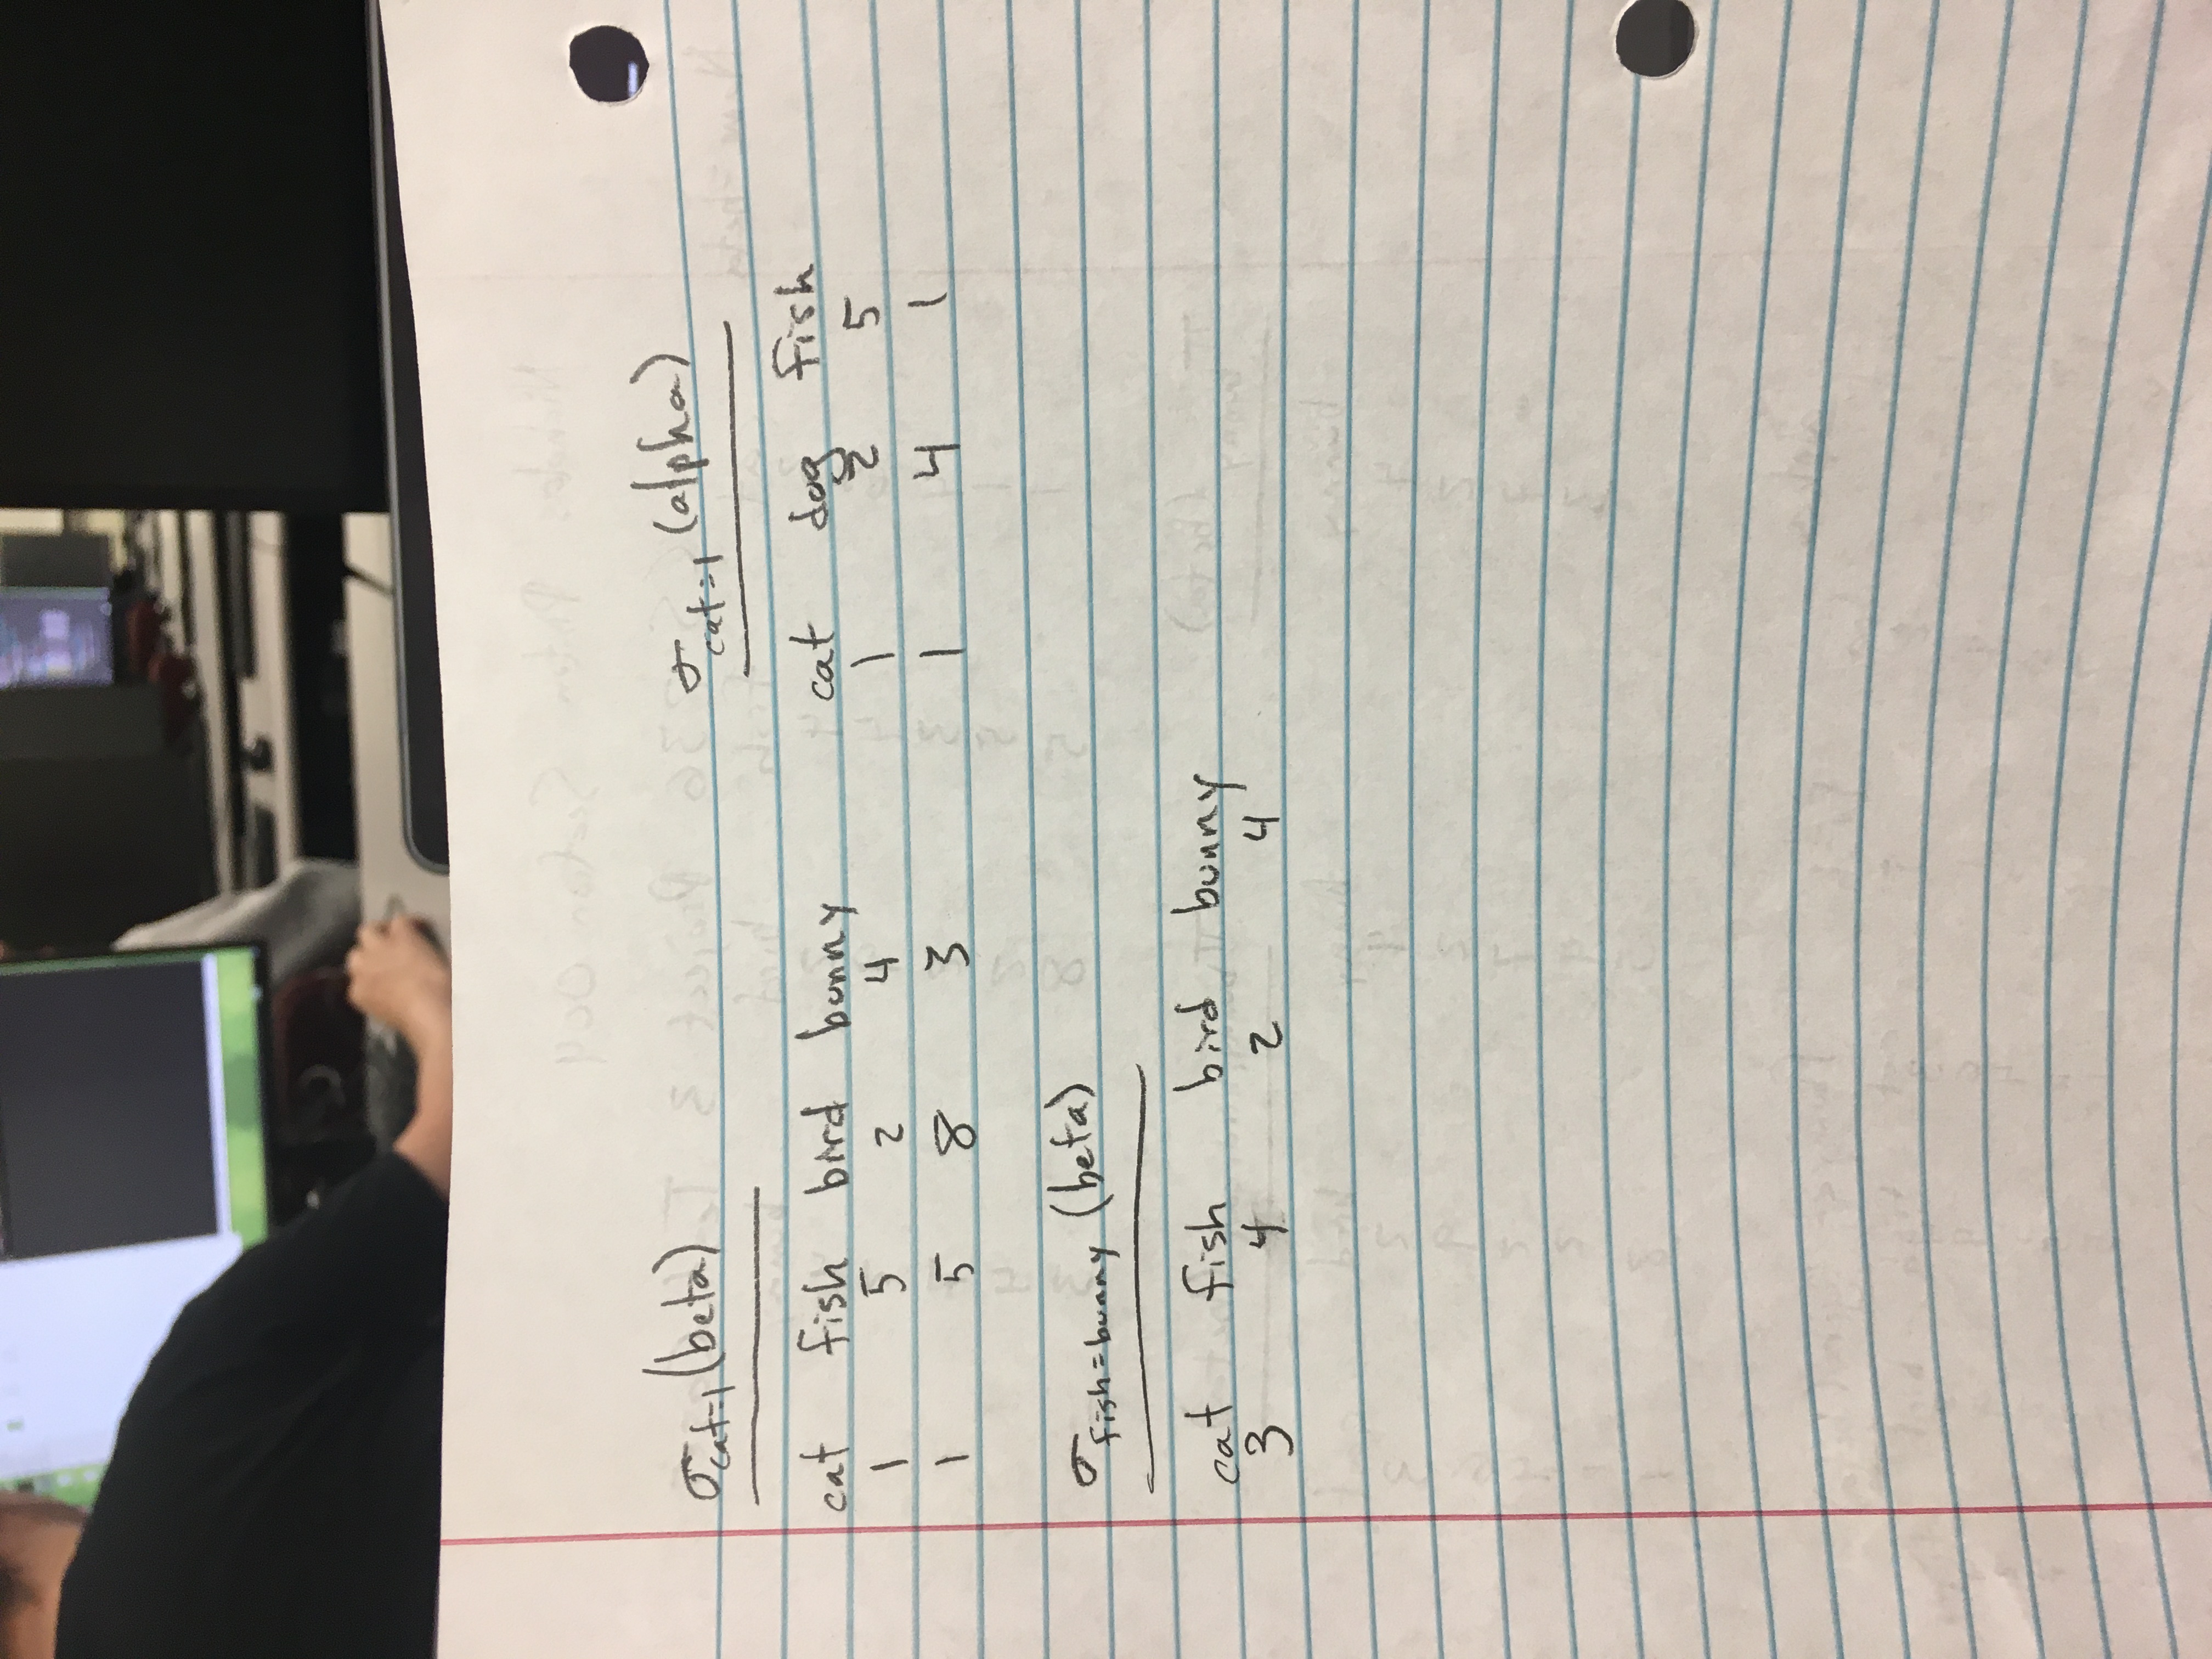 σcat=1 (beta)
cat fish bird bunny
1 5 2 4
1 5 8 3
σcat=1 (alpha)
cat dog fish
1 2 5
1 4 1
σfish=bunny (beta)
cat fish bird bunny
3 4 2 4